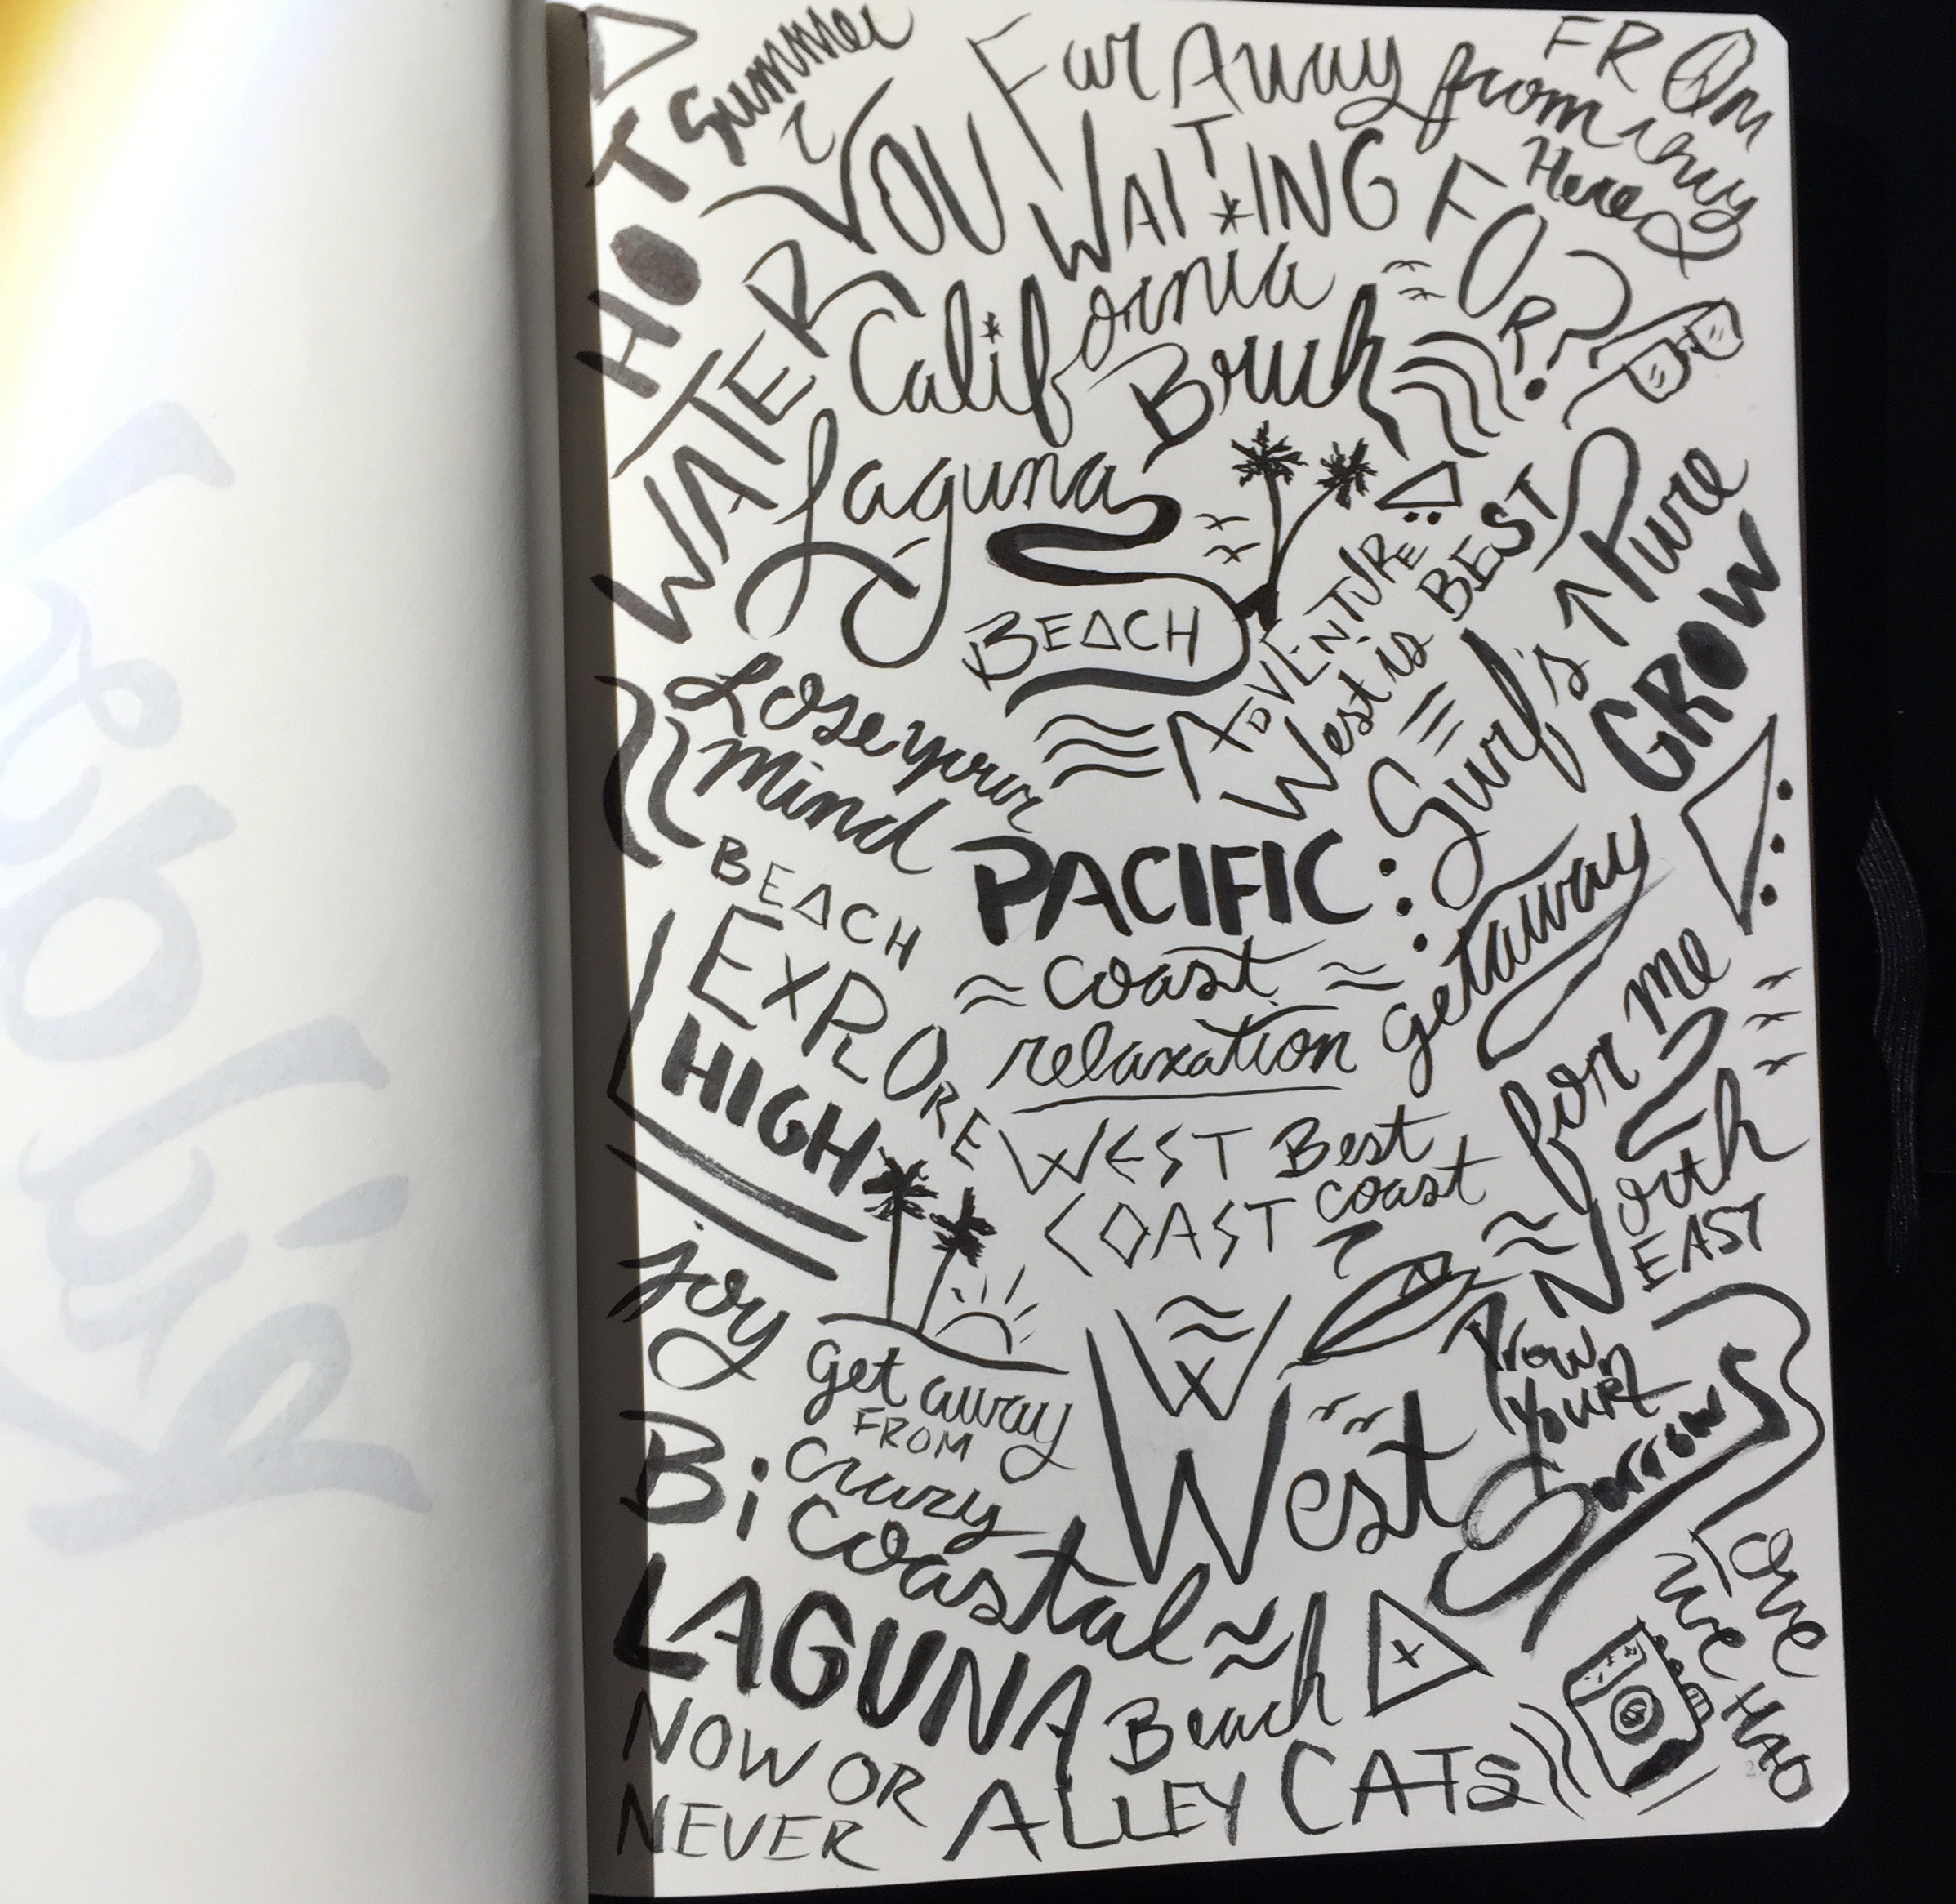 Summer
Far Away from my
FROM
Here
HOT
YOU WAITING FOR?
WATER
California
Beach
Laguna
BEACH
ADVENTURE
West is BEST
Pure
GROW
Surf's ↑
Lose your
mind
BEACH
PACIFIC
coast
getaway
EXPLORE
relaxation
HIGH
for me
WEST
COAST
Best
coast
North
EAST
joy
get away
FROM
crazy
West
Drown
Your
Sorrows
Bi Coastal
Love
we HAD
LAGUNA
Beach
NOW OR
NEVER
ALLEY CATS